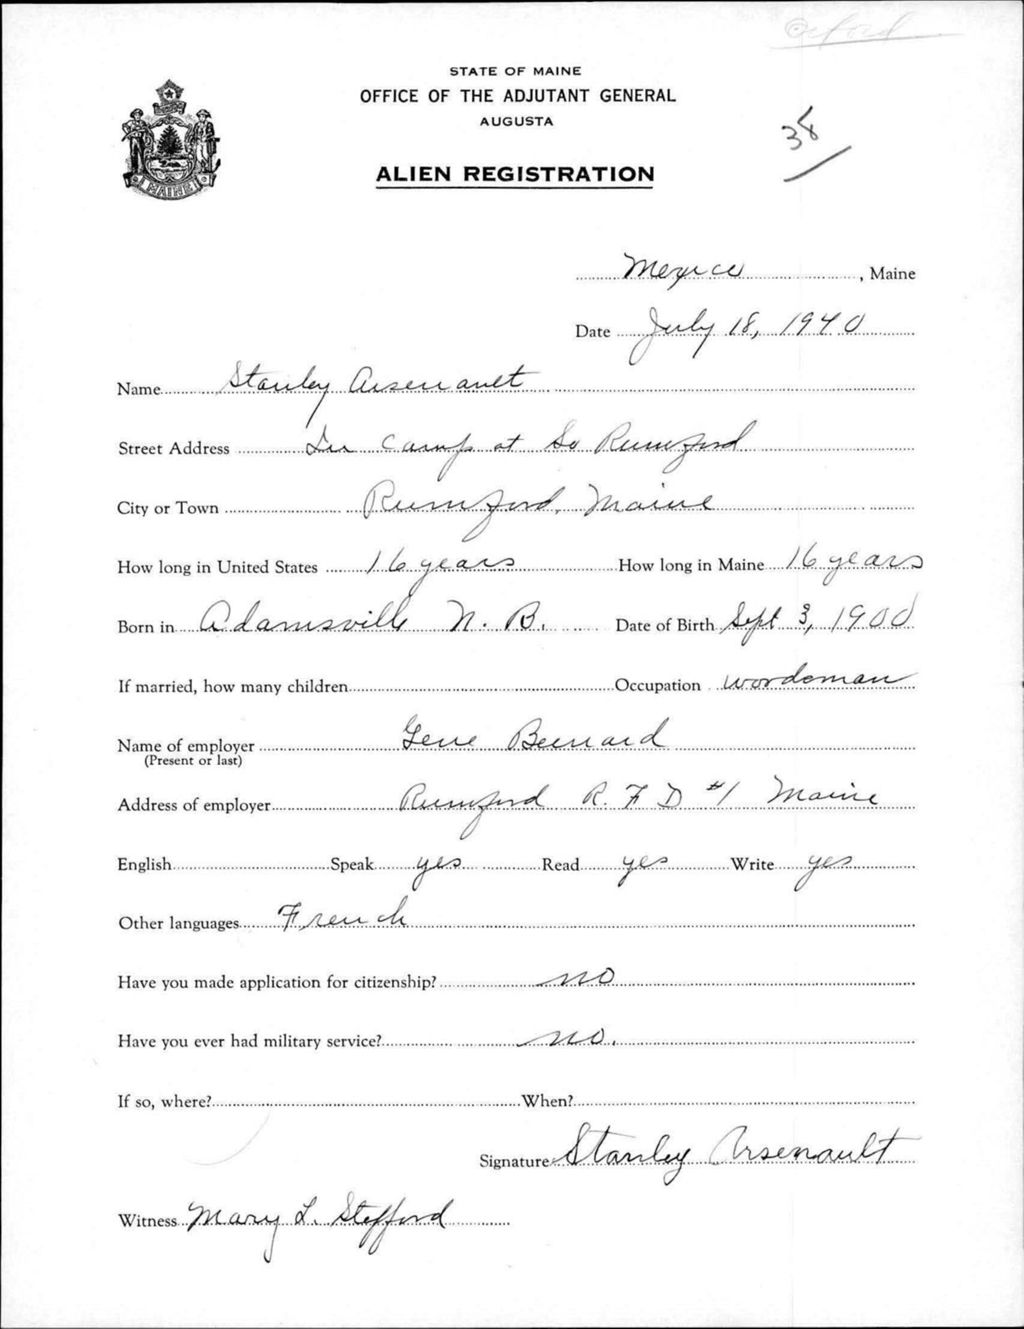 Oxford
STATE OF MAINE
OFFICE OF THE ADJUTANT GENERAL
AUGUSTA
38
ALIEN REGISTRATION
Mexico, Maine
Date July 18, 1940
Name Stanley Arsenault
Street Address In Camp at So Rumford
City or Town Rumford, Maine
How long in United States 16 years How long in Maine 16 years
Born in Adamsville N. B. Date of Birth Sept 3, 1900
If married, how many children Occupation woodsman
Name of employer Gene Bernard
(Present or last)
Address of employer Rumford R. F D #1 Maine
English Speak yes Read yes Write yes
Other languages French
Have you made application for citizenship? no
Have you ever had military service? no.
If so, where? When?
Signature Stanley Arsenault
Witness Mary L. Stefford